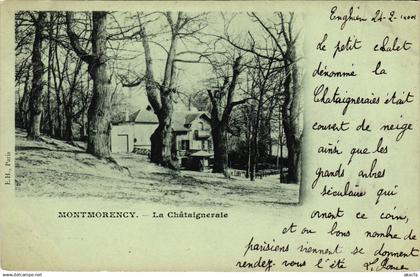 Enghien 24-2
Le petit chalet
dénommé la
Chataigneraie était
couvert de neige
ainsi que les
grands arbres
séculaire qui
ornent ce coin,
et ou bon nombre de
parisiens viennent se donnent
rendez vous l'été
E. H., Paris
MONTMORENCY. — La Châtaigneraie
akafic.com